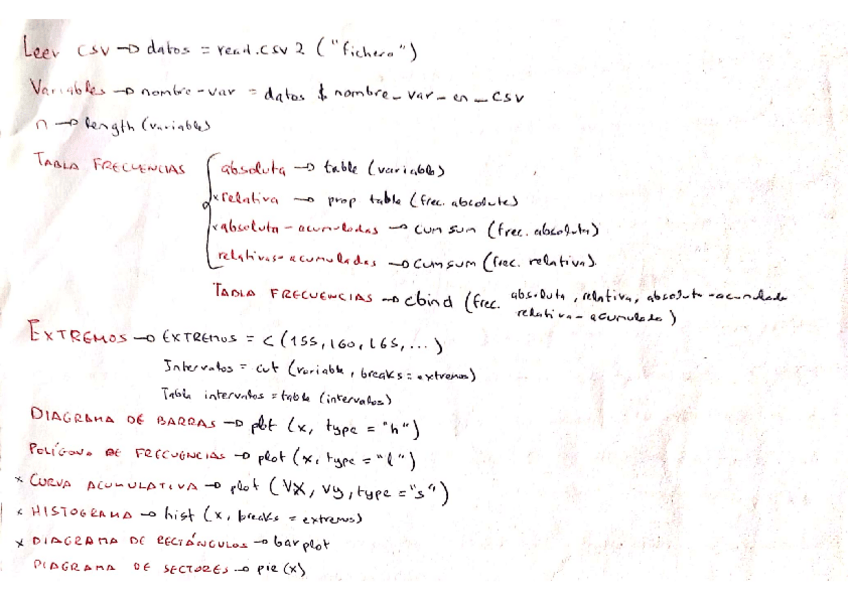 Leer CSV → datos = read.csv2 ("fichero")
Variables → nombre-var = datos $ nombre_var_en_CSV
n → length (variables)
TABLA FRECUENCIAS
absoluta → table (variable)
x relativa → prop table (frec. absoluta)
x absoluta - acumuladas → cumsum (frec. absoluta)
relativas - acumuladas → cumsum (frec. relativa)
TABLA FRECUENCIAS → cbind (frec. absoluta, relativa, absoluta - acumulada
relativa - acumulada)
EXTREMOS → EXTREMOS = c (155, 160, 165, ...)
Intervalos = cut (variable, breaks = extremos)
Tabla intervalos = table (intervalos)
DIAGRAMA DE BARRAS → plot (x, type = "h")
POLÍGONO DE FRECUENCIAS → plot (x, type = "l")
x CURVA ACUMULATIVA → plot (VX, vy, type = "s")
x HISTOGRAMA → hist (x, breaks = extremos)
x DIAGRAMA DE RECTÁNGULOS → barplot
DIAGRAMA DE SECTORES → pie (x)